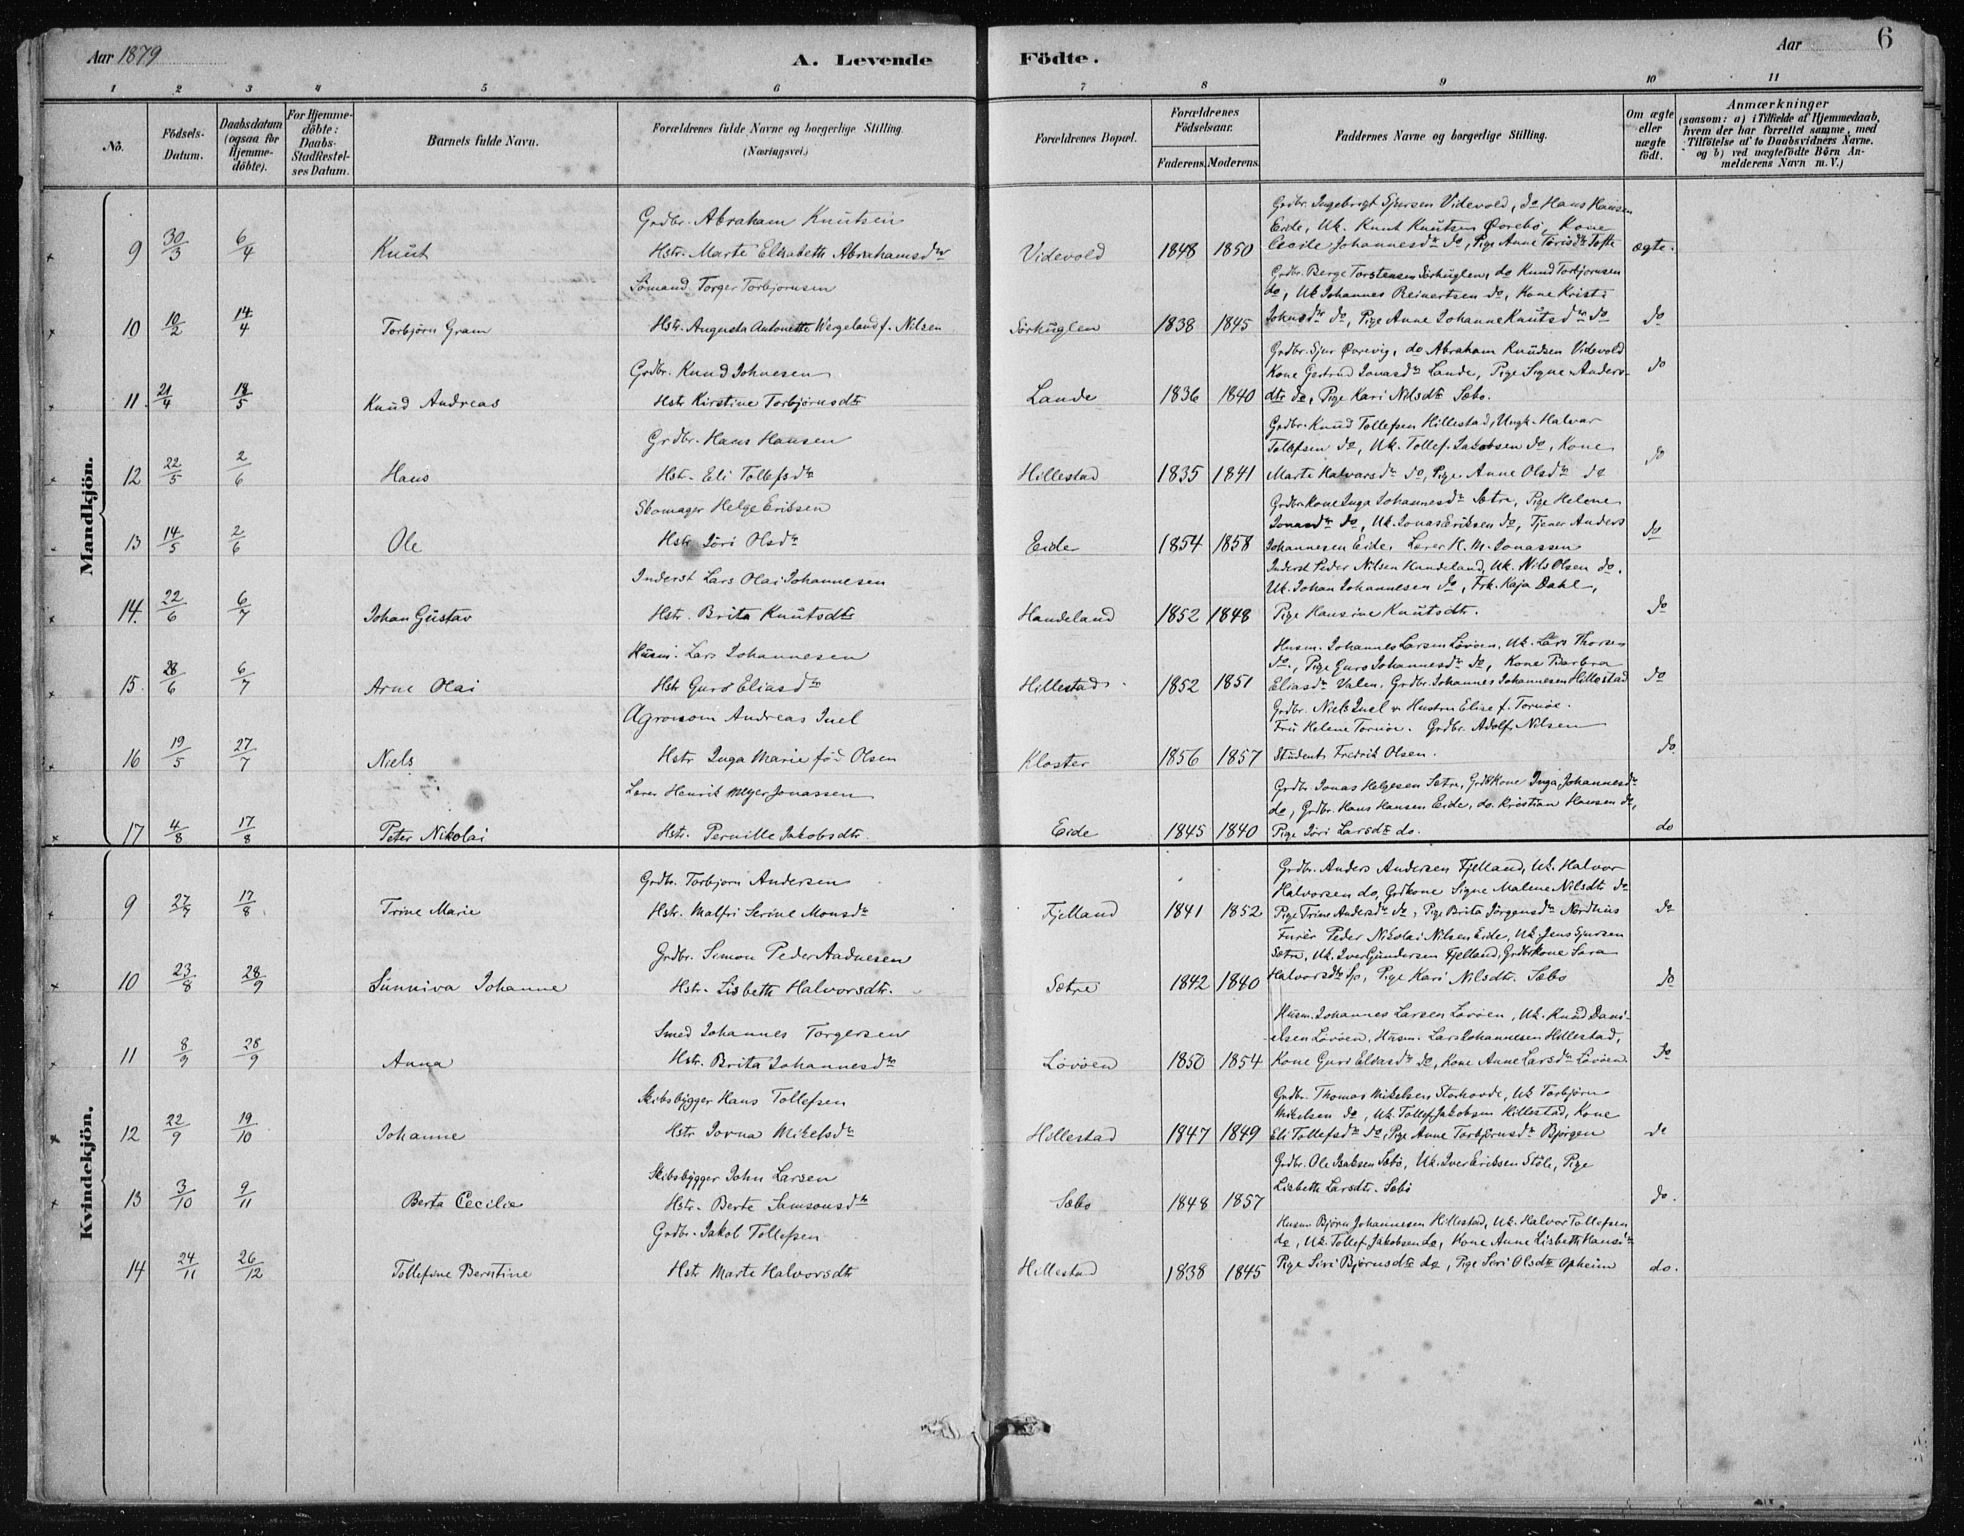 Aar 1879
A. Levende
Födte.
Aar
6
1 2 3 4 5 6 7 8 9 10 11
No.
Födsels-
Datum.
Daabsdatum
(ogsaa for
Hjemme-
döbte).
For Hjemme-
döbte:
Daabs-
Stadfæstel-
ses Datum.
Barnets fulde Navn.
Forældrenes fulde Navne og borgerlige Stilling.
(Næringsvei.)
Forældrenes Bopæl.
Forældrenes
Födselsaar.
Faderens. Moderens.
Faddernes Navne og borgerlige Stilling.
Om ægte
eller
uægte
födt.
Anmærkninger
(saasom: a) i Tilfælde af Hjemmedaab,
hvem der har forrettet samme, med
Tilföielse af to Daabsvidners Navne.
og b) ved uægtefödte Börn An-
melderens Navn m. V.)
Mandkjön.
9 30/3 6/4 Knut
Grdbr. Abraham Knutsen
Hstr. Marte Elisabeth Abrahamsdtr
Videvold 1848 1850
Grdbr. Ingebrigt Sjursen Videvold, do Hans Hansen
Eide, Uk. Knut Knutsen Øvrebø, Kone
Cecile Johannesdtr do, Pige Anne Torisdtr Tofte
ægte.
10 10/2 14/4 Torbjørn Gram
Sömand Torger Torbjørnsen
Hstr. Augusta Antonette Wergeland f. Nilsen
Sørhuglen 1838 1845
Grdbr. Berge Torstensen Sörhuglen, do Knud Torbjørnsen
do, Uk Johannes Reinertsen do, Kone Kristi
Johnsdtr do, Pige Anne Johanne Knutsdtr do
do
11. 21/4 18/5 Knud Andreas
Grdbr. Knud Johnesen
Hstr Kirstine Torbjørnsdtr
Lande 1836 1840
Grdbr. Sjur Øvrevig, do Abraham Knudsen Videvold
Kone Gertrud Jonasdtr Lande, Pige Signe Anders-
dtr do, Pige Kari Nilsdtr Sæbø.
do
12 22/5 2/6 Hans
Grdbr. Hans Hansen
Hstr. Eli Tollefsdtr
Hillestad 1835 1841
Grdbr. Knud Tollefsen Hillestad, Ungk. Halvar
Tollefsen do, Uk. Tollef Jakobsen do, Kone
Marte Halvarsdtr do, Pige Anne Olsdtr do
do
13 14/5 2/6 Ole
Skomager Helge Eriksen
Hstr Jöri Olsdtr
Eide 1854 1858
Grdbr. Kone Inga Johannesdtr Sætre, Pige Helene
Jonasdtr do, Uk. Jonas Eriksen do, Tjener Anders
Johannesen Eide, Lærer H. M. Jonassen
do
14. 22/6 6/7 Johan Gustav
Inderst Lars Olai Johannesen
Hstr. Brita Knutsdtr
Handeland 1852 1848
Inderst Peder Nilsen Handeland, Uk. Nils Olsen do,
Uk. Johan Johannesen do, Frk. Kaja Dahl,
Pige Hansine Knutsdtr.
do
15. 28/6 6/7 Arne Olai
Husm. Lars Johannesen
Hstr Guro Eliasdtr
Hillestad 1852 1851
Husm. Johannes Larsen Løvøen, Uk. Lars Thorsen
do., Pige Guro Johannesdtr do, Kone Barbra
Eliasdtr Valen. Grdbr. Johannes Johannesen Hillestad
do
16 19/5 27/7 Niels
Agronom Andreas Juel
Hstr Inga Marie fød Olsen
Kloster 1856 1857
Grdbr. Niels Juel & Hustru Elise f. Tornøe.
Fru Helene Tornøe. Grdbr. Adolf Nilsen
Student Fredrik Olsen.
do.
17 4/8 17/8 Peter Nikolai
Lærer Henrik Meyer Jonassen
Hstr. Pernille Jakobsdtr.
Eide 1845 1840
Grdbr. Jonas Helgesen Sætre, Grdbr.kone Inga Johannesdtr
do, Grdbr. Hans Hansen Eide, do. Kristian Hansen do,
Pige Jöri Larsdtr do.
do
Kvindekjön.
9 27/7 17/8 Trine Marie
Grdbr. Torbjørn Andersen
Hstr. Malfri Serine Monsdtr
Fjelland 1841 1852
Grdbr. Anders Andersen Fjelland, Uk. Halvor
Halvorsen do, Grdkone Signe Malene Nilsdtr do
Pige Trine Andersdtr do, Pige Brita Jörgensdtr Nordhus
do
10 23/8 28/9 Sunniva Johanne
Grdbr. Simon Peder Aadnesen
Hstr. Lisbeth Halvorsdtr.
Sætre 1842 1840
Furér Peder Nikolai Nilsen Eide, Uk. Jens Sjursen
Sætre, Uk. Iver Gundersen Fjelland, Grdbrkone Sara
Halvorsdtr do, Pige Kari Nilsdtr. Sæbø
do
11 8/9 28/9 Anna
Smed Johannes Torgersen
Hstr. Brita Johannesdtr
Løvøen 1850 1854
Husm. Johannes Larsen Løvøen, Uk. Knud Dani-
elsen Løvøen, Husm. Lars Johannesen Hillestad,
Kone Guri Eliasdtr do, Kone Anne Larsdtr Løvøen
do
12 22/9 19/10 Johanne
Skibsbygger Hans Tollefsen
Hstr Jorna Mikelsdtr
Hillestad 1847 1849
Grdbr. Thomas Mikelsen Storhovde, Uk Torbjörn
Mikelsen do, Uk Tollef Jakobsen Hillestad, Kone
Eli Tollefsdtr do, Pige Anne Torbjørnsdtr Bjørgen
do
13 3/10 9/11 Berta Cecilie
Skibsbygger John Larsen
Hstr. Berte Samsonsdtr
Sæbø 1848 1857
Grdbr. Ole Isaksen Sæbö, Uk. Iver Eriksen Stöle, Pige
Lisbeth Larsdtr. Sæbö
do.
14 24/11 26/12 Tollefine Berntine
Grdbr. Jakob Tollefsen
Hstr Marte Halvorsdtr
Hillestad 1838 1845
Husm Björn Johannesen Hillestad, Uk. Halvor Tollefsen
do, Uk. Tollef Jakobsen do, Kone Anne Lisbeth Hansdtr
Pige Siri Bjørnsdtr do, Pige Siri Olsdtr Opheim
do.